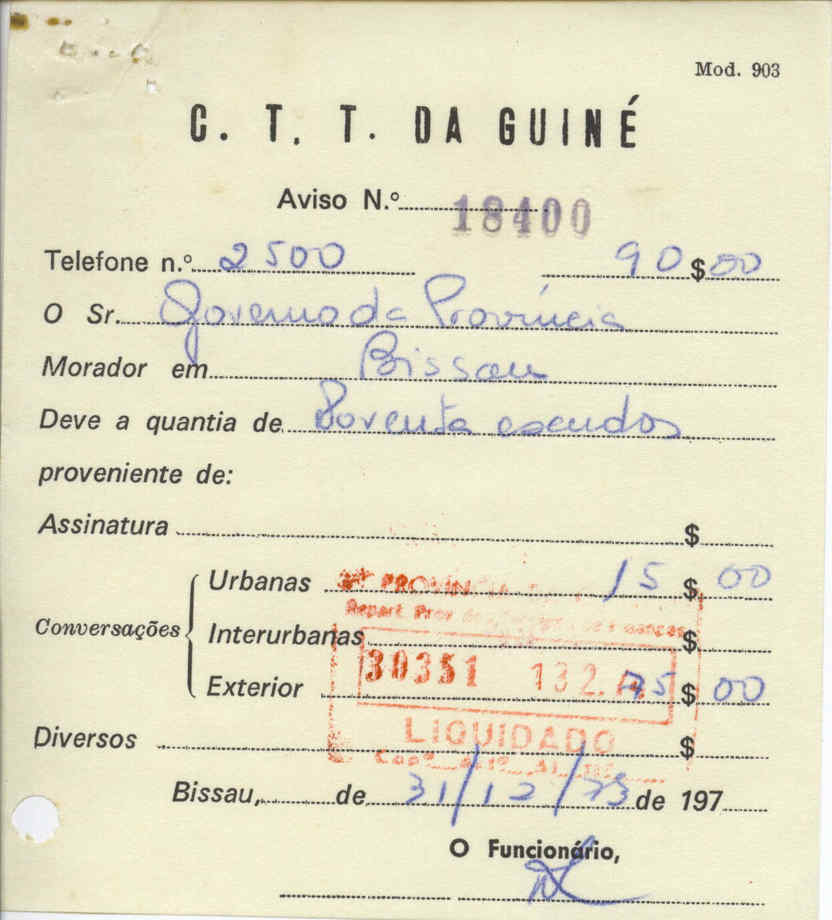 Mod. 903
C. T. T. DA GUINÉ
Aviso N.º 18400
Telefone n.º 2500 90$00
O Sr. Governo da Província
Morador em Bissau
Deve a quantia de Noventa escudos
proveniente de:
Assinatura $
Urbanas 15$00
PROVÍNCIA
Repart. Prov
Conversações Interurbanas $
30351 132.
Exterior 75$00
LIQUIDADO
Diversos $
Bissau, de 31/12/73 de 197
O Funcionário,